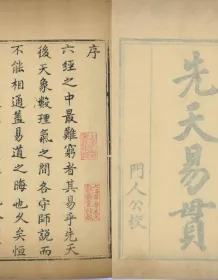 先天易貫
門人公校
序
六經之中最難窮者其易乎先天
後天象數理氣之間各守師說而
不能相通蓋易道之晦也久矣恒